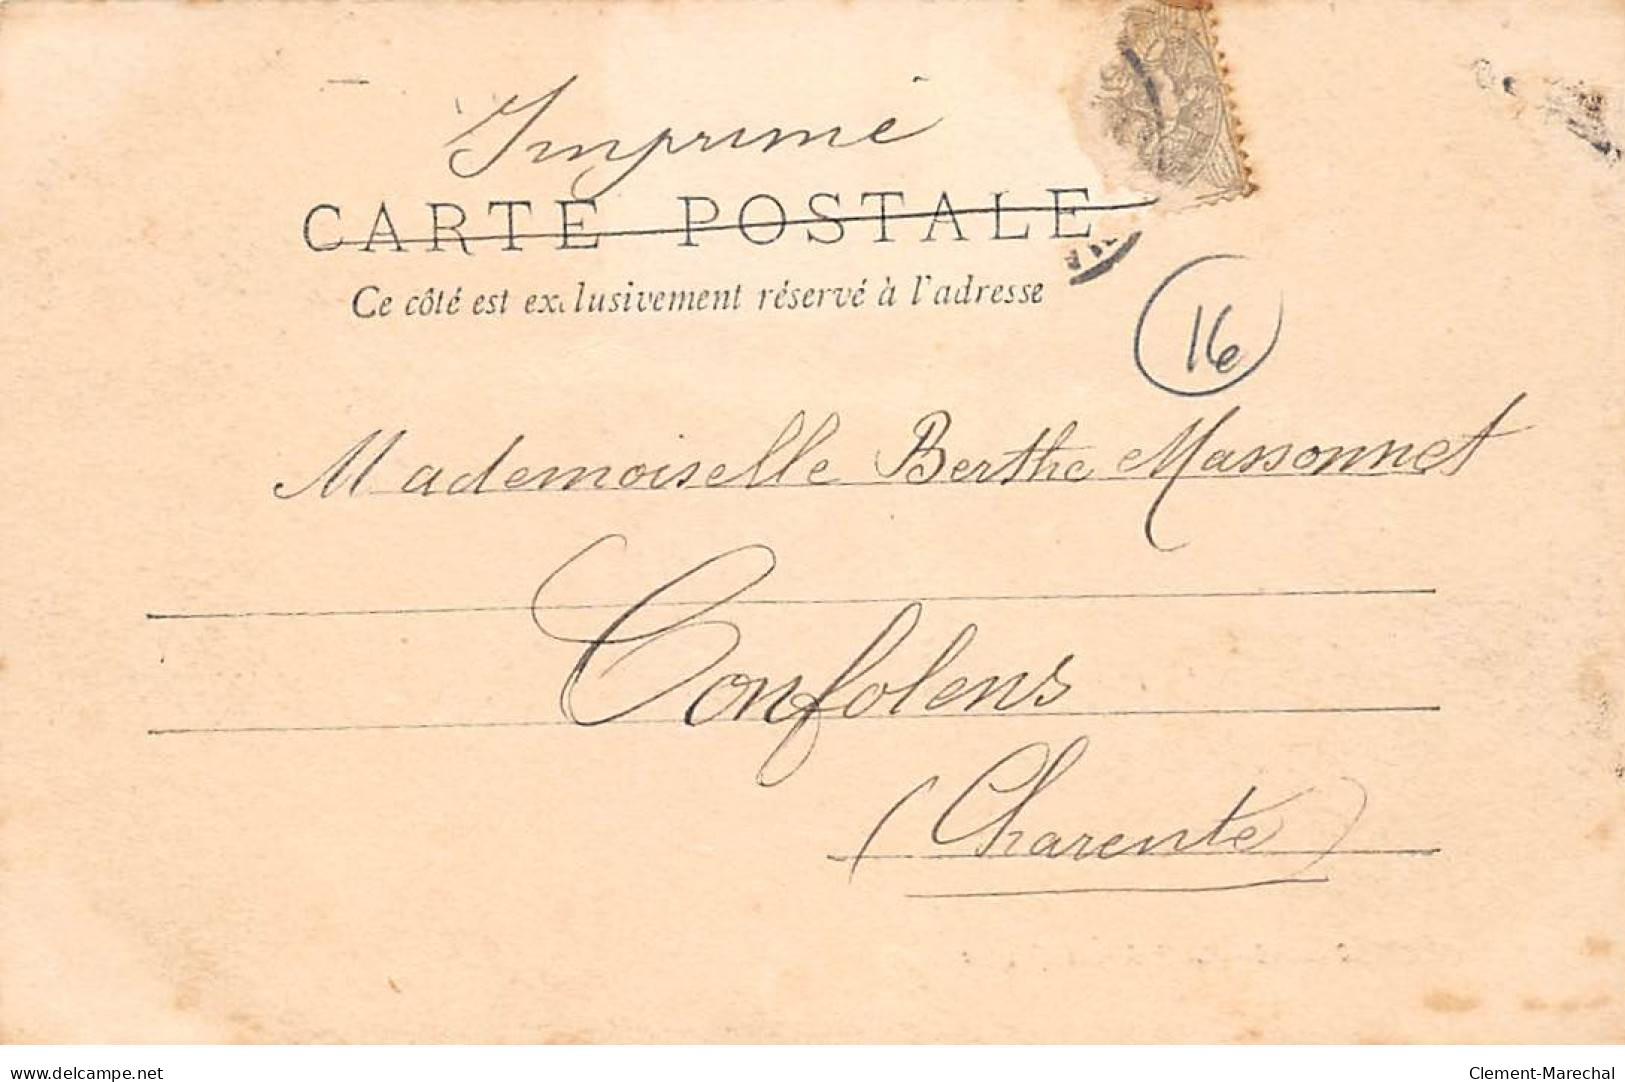 Imprimé
CARTE POSTALE
Ce côté est exclusivement réservé à l'adresse
16
Mademoiselle Berthe Massonnet
Confolens
(Charente)
delcampe.net
Clement-Marechal